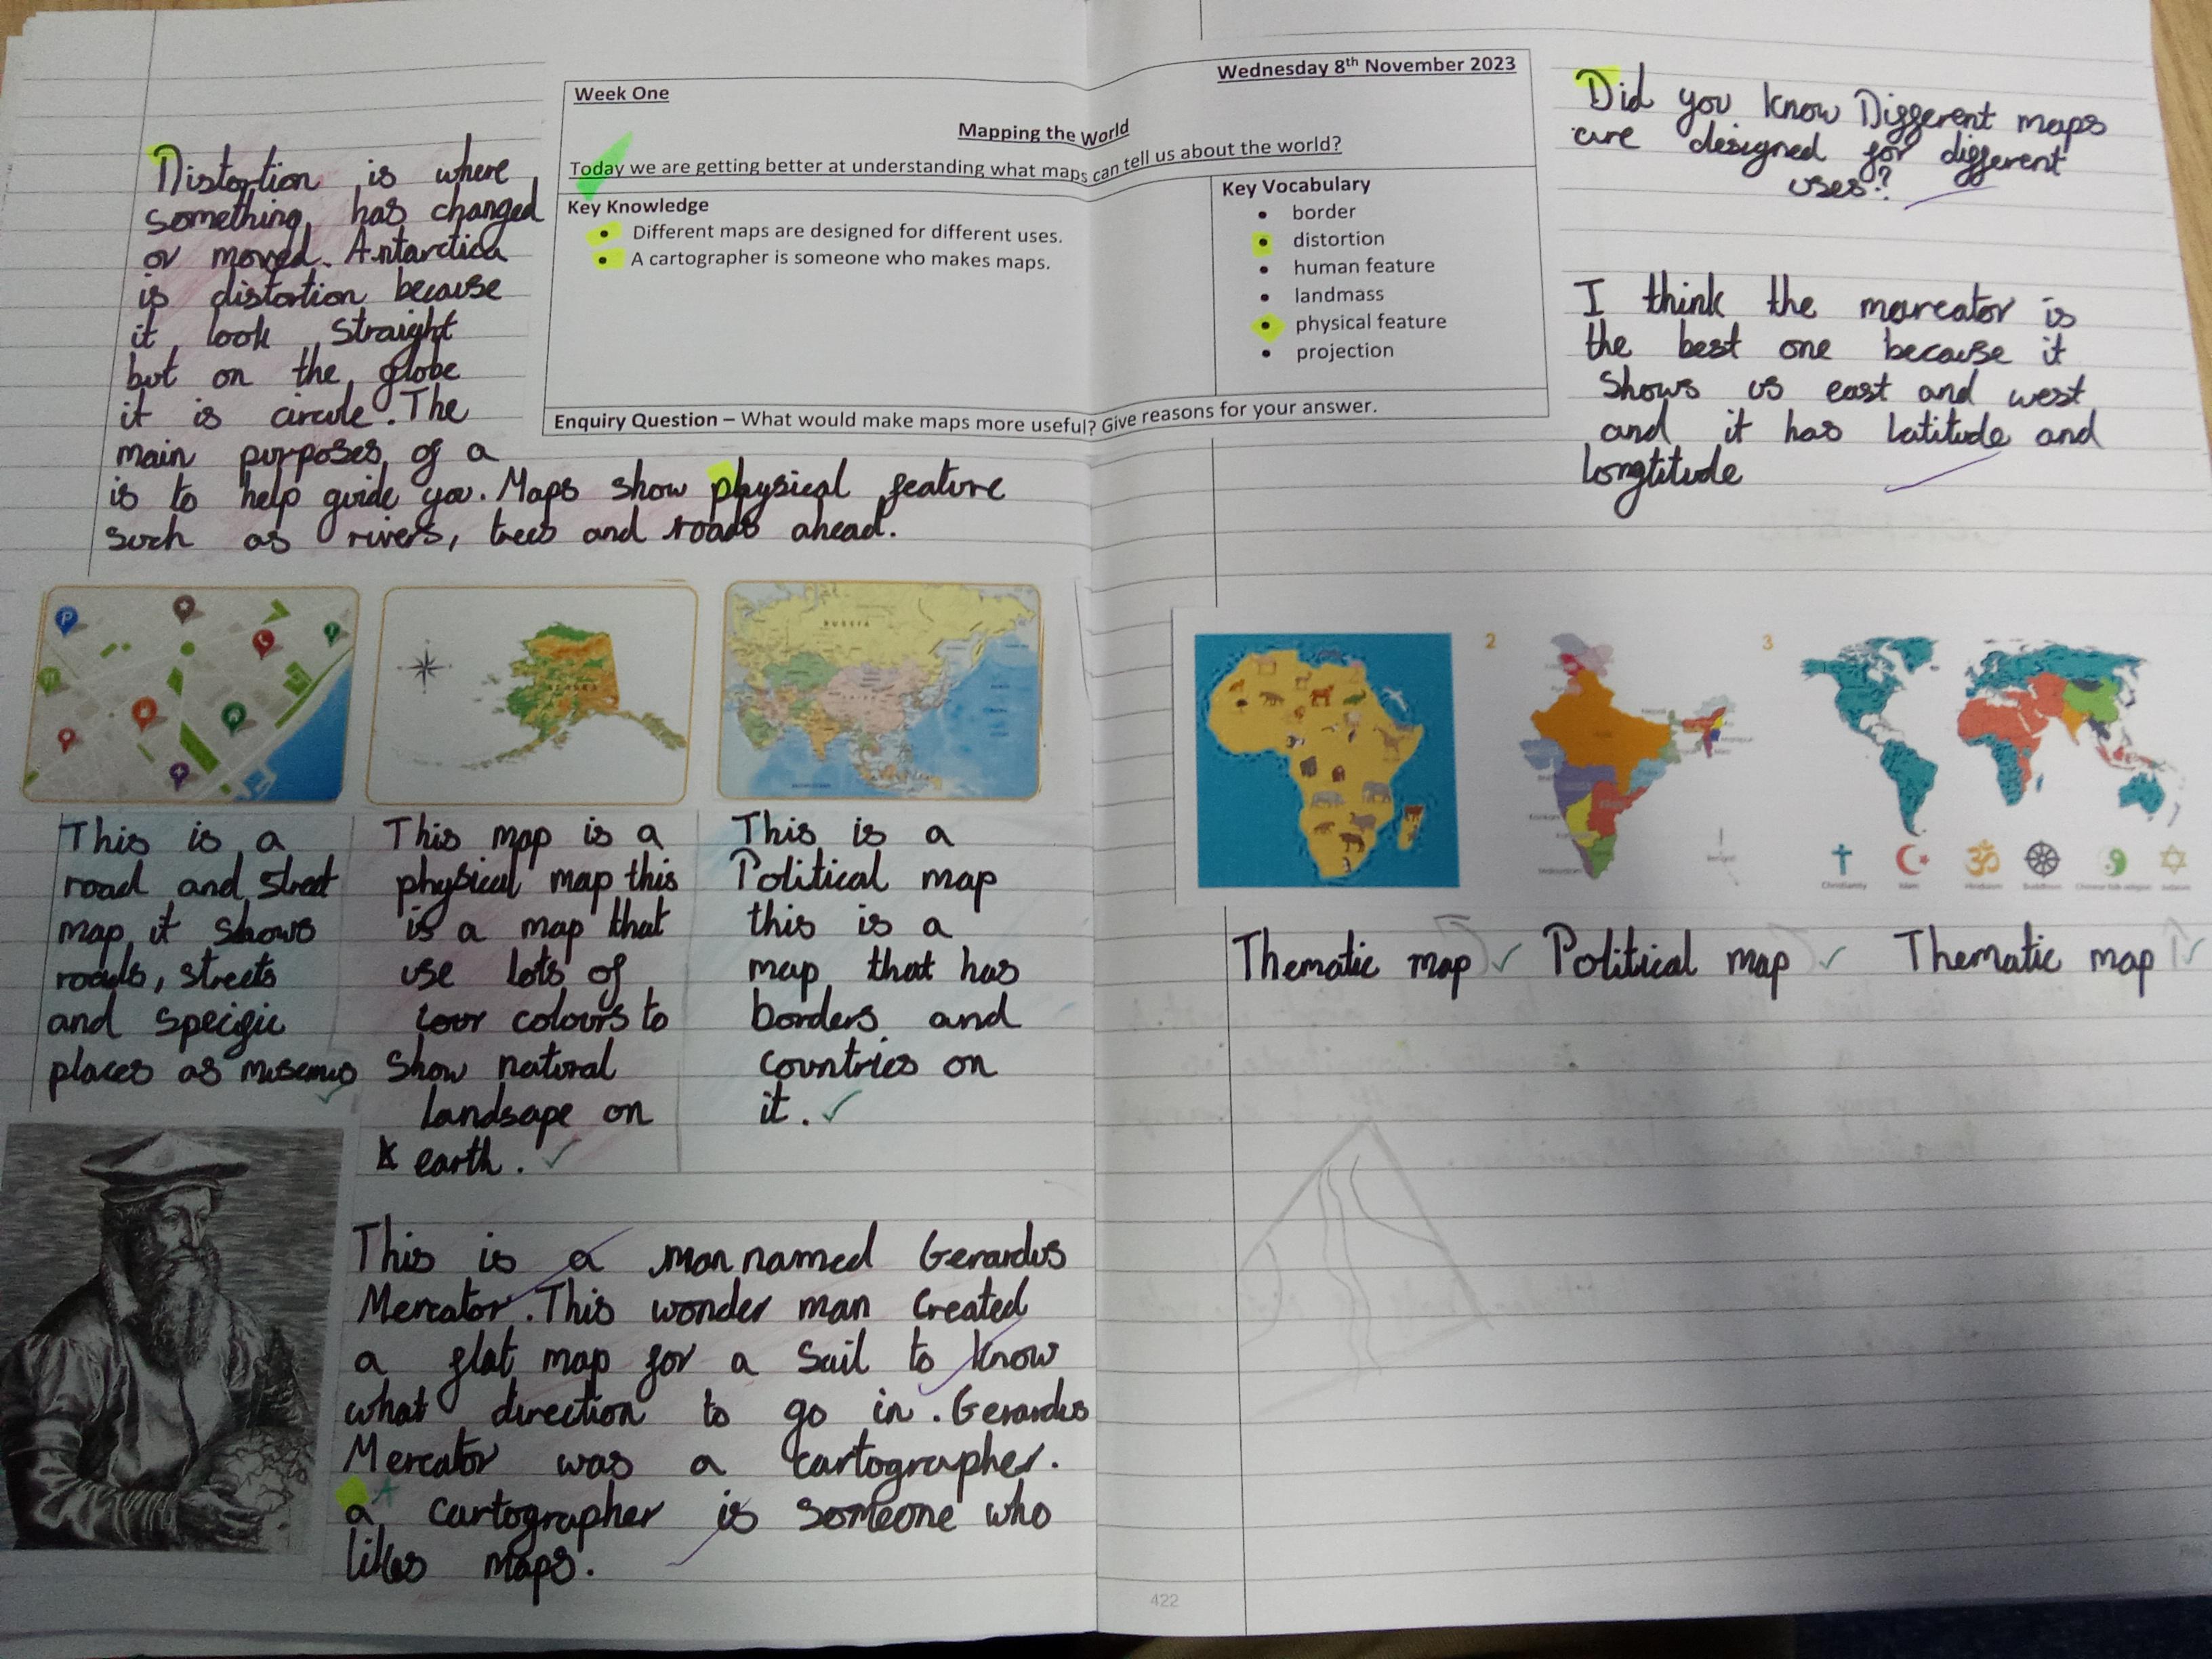 Week One
Wednesday 8th November 2023
Mapping the World
Today we are getting better at understanding what maps can tell us about the world?
Key Knowledge
• Different maps are designed for different uses.
• A cartographer is someone who makes maps.
Key Vocabulary
• border
• distortion
• human feature
• landmass
• physical feature
• projection
Enquiry Question – What would make maps more useful? Give reasons for your answer.
Distortion is where
something has changed
or moved. Antarctica
is distortion because
it look straight
but on the globe
it is circule. The
main purposes of a
is to help guide you. Maps show physical feature
such as rivers, trees and roads ahead.
RUSSIA
This is a
road and street
map it shows
roads, streets
and specific
places as
This map is a
physical map this
is a map that
use lots of
colours to
show natural
landsape on
earth.
This is a
Political map
this is a
map that has
borders and
countries on
it.
This is a man named Gerardus
Mercator. This wonder man created
a flat map for a sail to know
what direction to go in. Gerardus
Mercator was a cartographer.
a cartographer is someone who
likes maps.
Did you know Different maps
are designed for different
uses?
I think the marcator is
the best one because it
shows us east and west
and it has latitude and
longtitude
2
3
Christianity
Islam
Hinduism
Buddhism
Chinese folk religion
Judaism
Thematic map
Political map
Thematic map
422